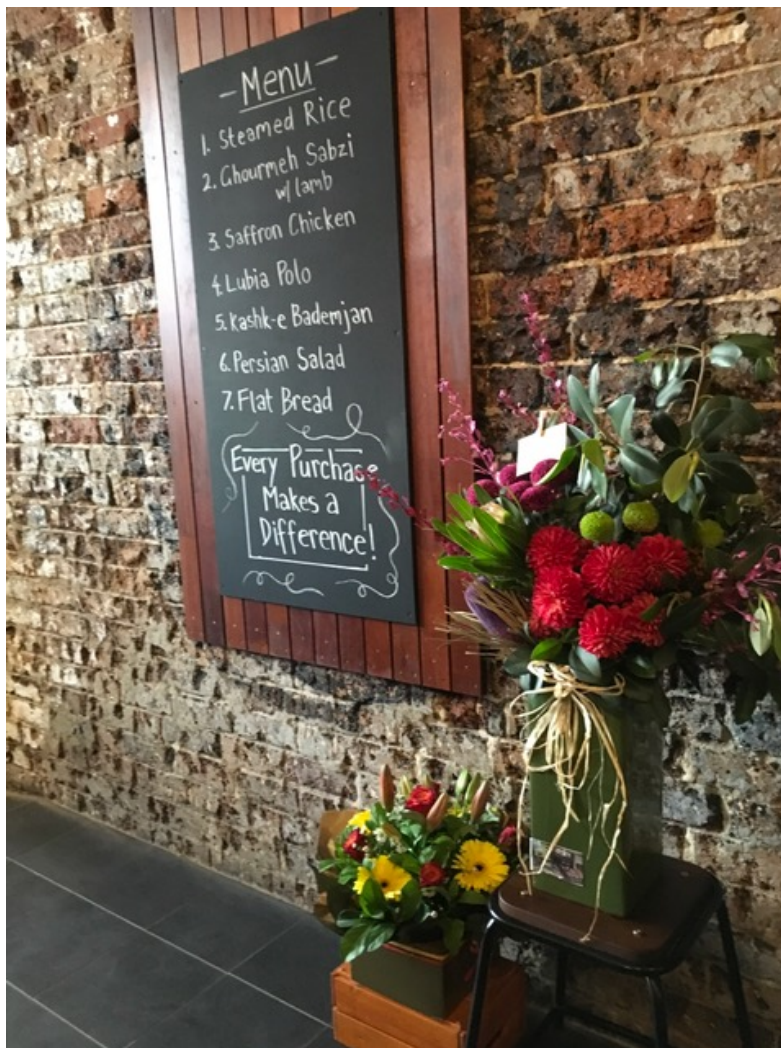 - Menu -
1. Steamed Rice
2. Ghourmeh Sabzi
w/ lamb
3. Saffron Chicken
4. Lubia Polo
5. Kashk-e Bademjan
6. Persian Salad
7. Flat Bread
Every Purchase
Makes a
Difference!